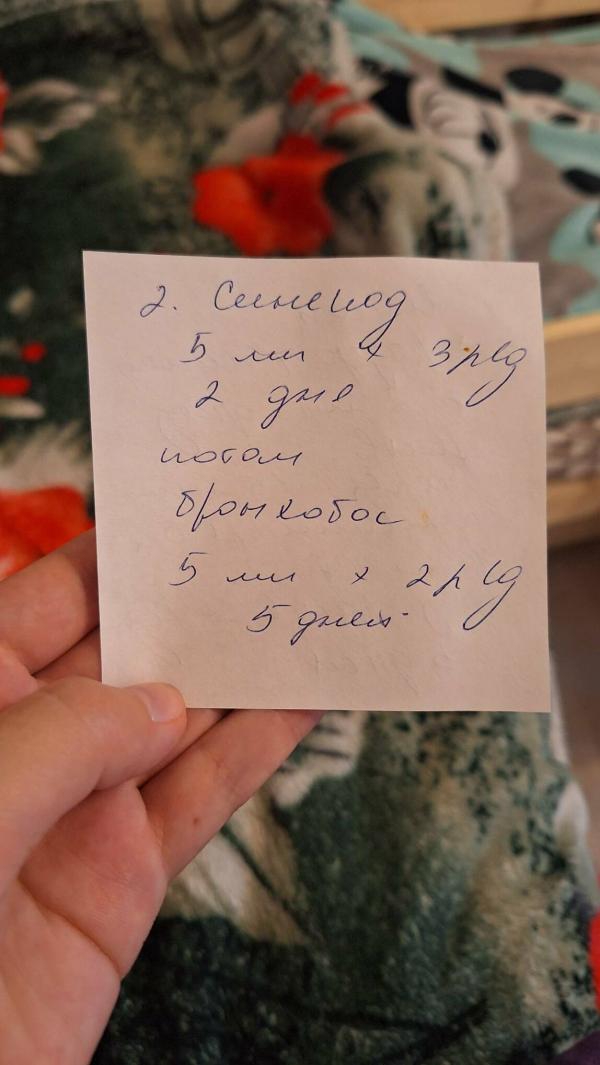 2. Синекод
5 мл x 3р/д
2 дня
потом
бронхобос
5 мл x 2р/д
5 дней